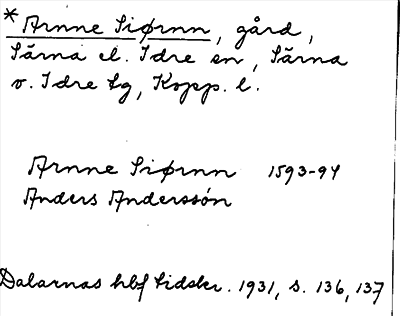 * Arnne Siørnn, gård,
Särna el. Idre sn, Särna
o. Idre tg, Kopp. l.
Arnne Siørnn 1593-94
Anders Anderssón
Dalarnas hbf tidskr. 1931, s. 136, 137